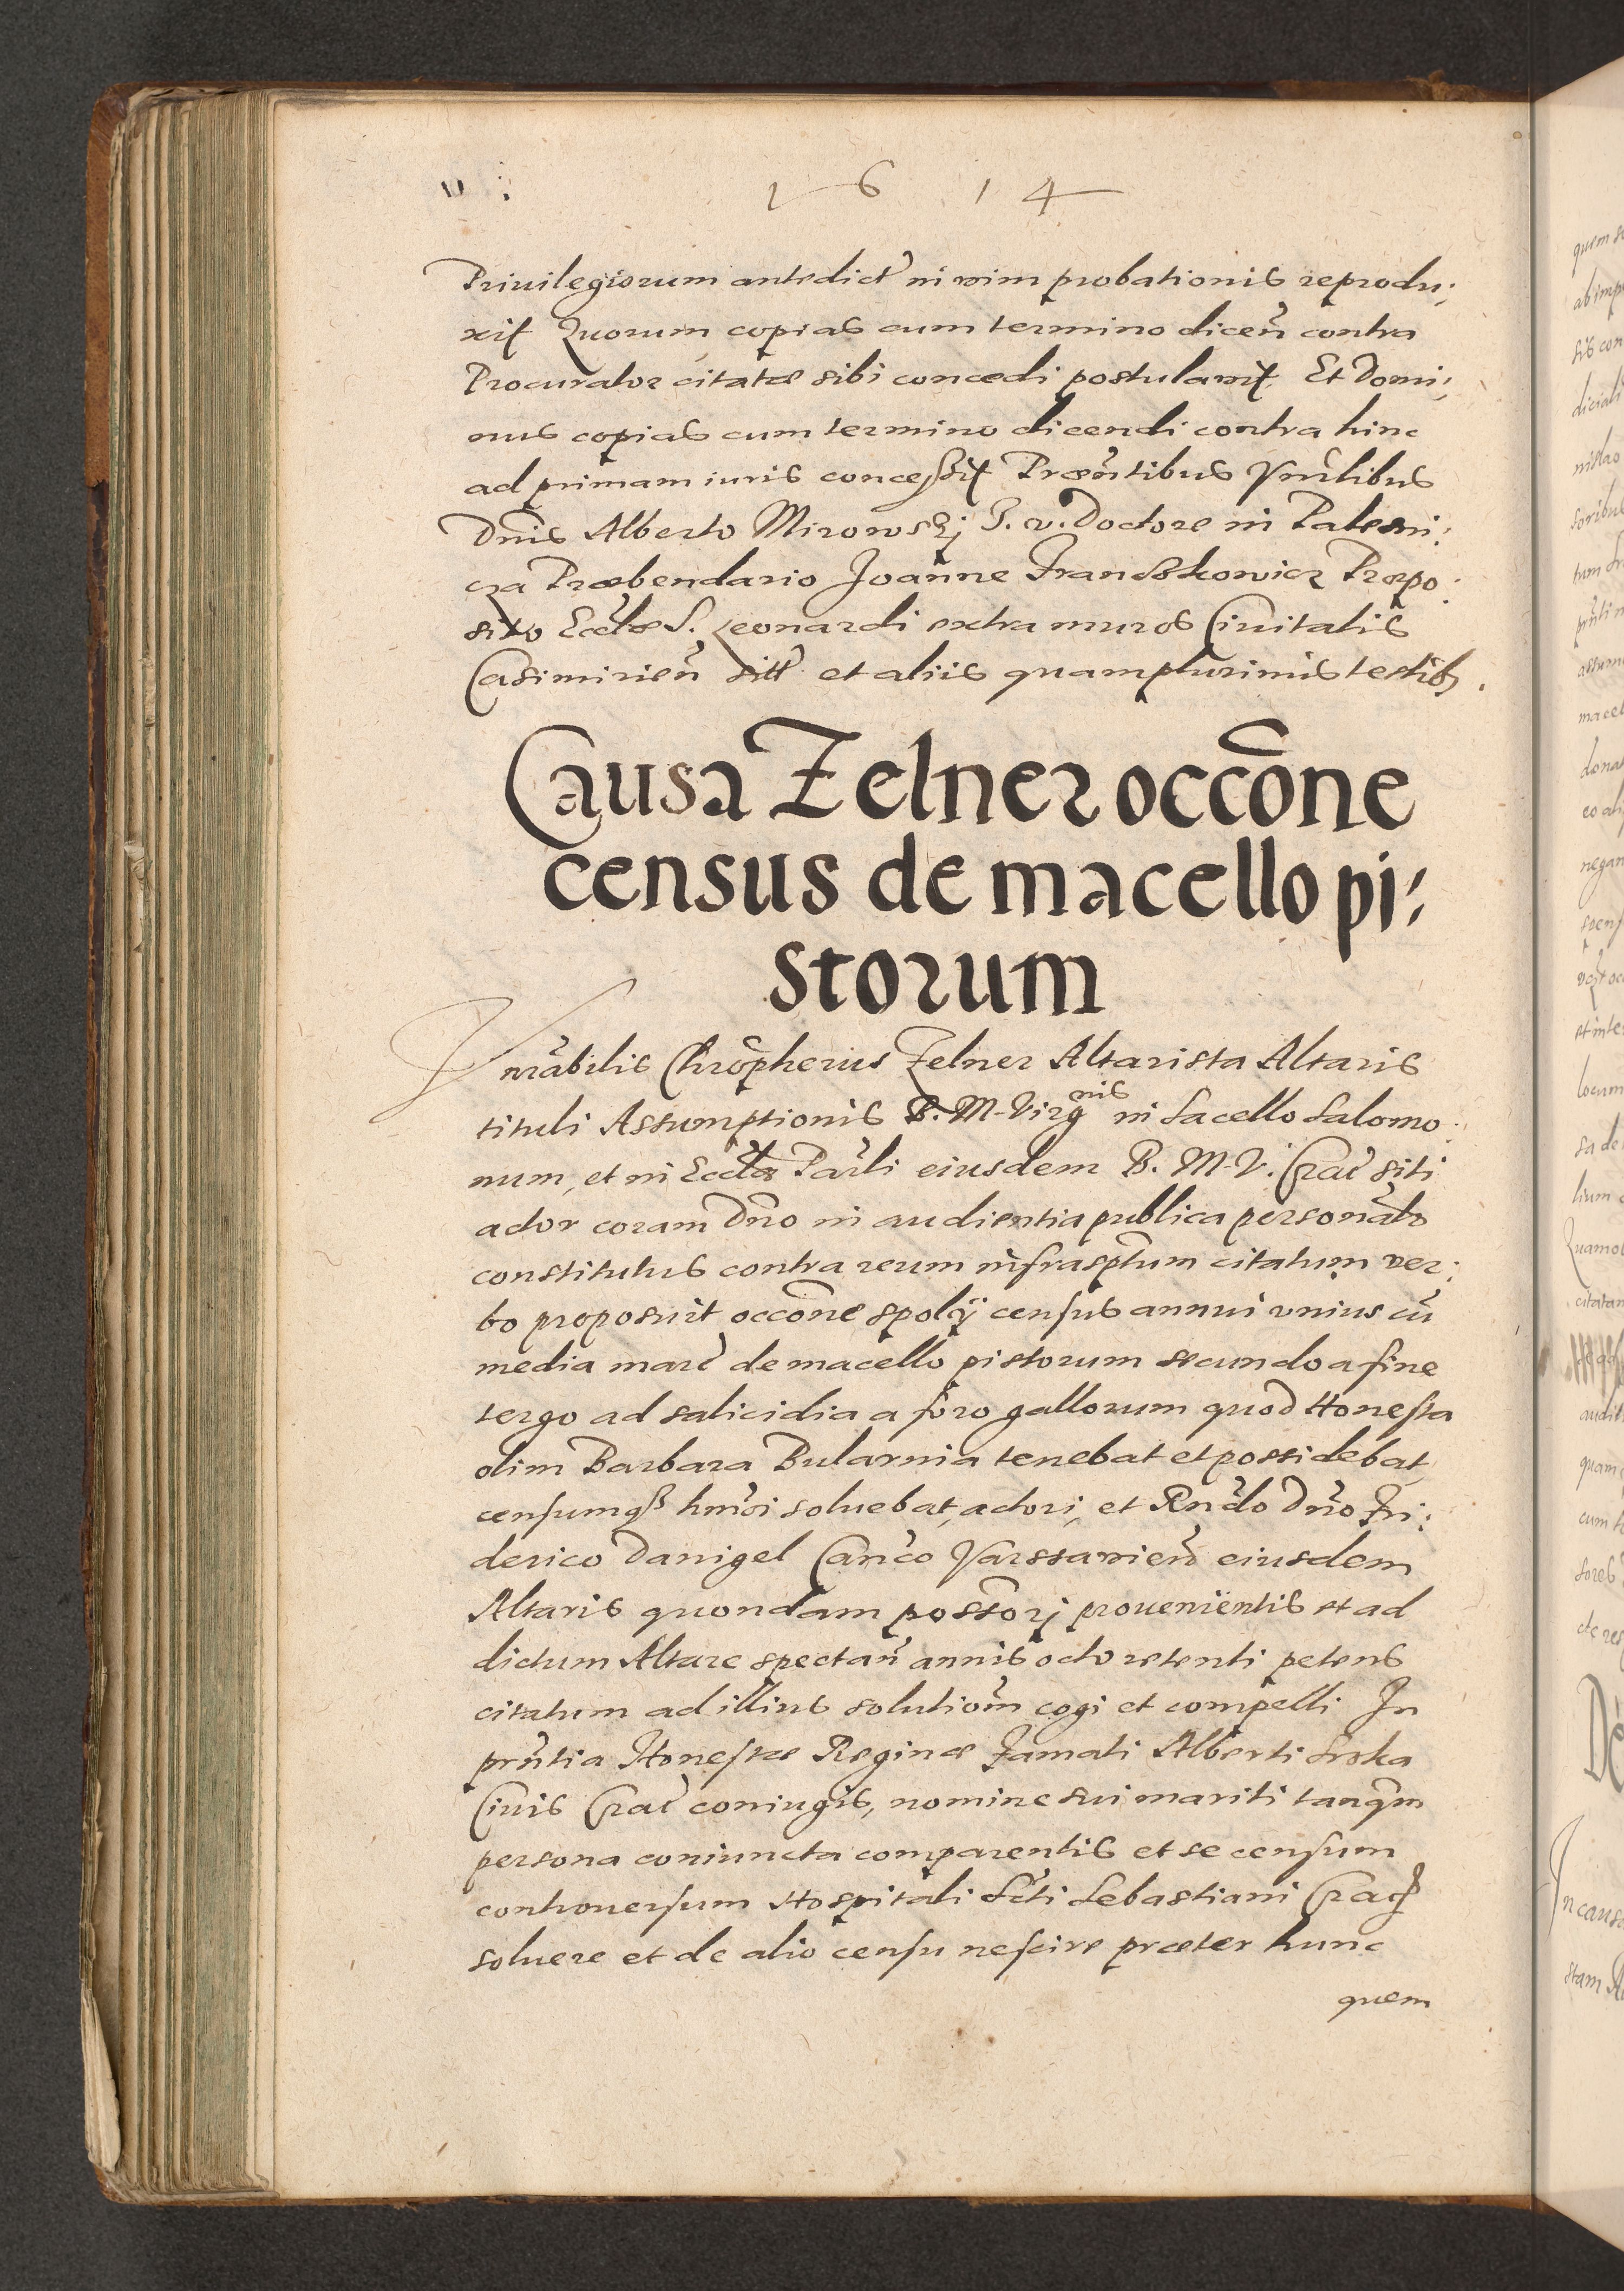 1614
Priuilegiorum antedict in vim probationis reprodu:
xit Quorum copias cum termino dicen̄ contra
Procurator citatæ sibi concedi postulavit Et Domi:
nus copias cum termino dicendi contra hinc
ad primam iuris concessit Præn̄tibus Vn̄libus
Dn̄is Alberto Mirowskj J. v. Doctore in Paleczni:
cza Præbendario Joan̄ne Franckowicz Præpo:
sito Eccl̄æ S. Leonardi extra muros Ciuitatis
Casimirien̄ sitt et aliis quamplurimis testib9.
Causa Zelner occōne
census de macello pi:
storum
Vnrābilis Chrōpherus Zelner Altarista Altaris
tituli Assumptionis B. M. Virgnis in Sacello Salomo:
num, et in Eccl̄a Parl̄i eiusdem B. M. V. Crac̄ siti
actor coram Dn̄o in audientia publica personal̄r
constitutus contra reum infrasptum citatum ver:
bo proposuit occōne spolij census annui vnius cū
media marc̄ de macello pistorum secundo a fine
tergo ad salicidia a foro gallorum quod Honesta
olim Barbara Bularnia tenebat et possidebat
censumq3 hm̄oi soluebat, actori, et Rn̄do Dn̄o Fri:
derico Danigel Can̄co Varssavien̄ eiusdem
Altaris quondam possōrj prouenientis et ad
dictum Altare spectan̄ annis octo retenti petens
citatum ad illius solutiōm cogi et compelli In
prn̄tia Honestæ Reginæ Famati Alberti Sroka
Ciuis Crac̄ coniugis, nomine sui mariti tanq̄m
persona coniuncta comparentis et se censum
controuersum Hospitali Scti Sebastiani Crac
soluere et de alio censu nescire præter hunc
quem